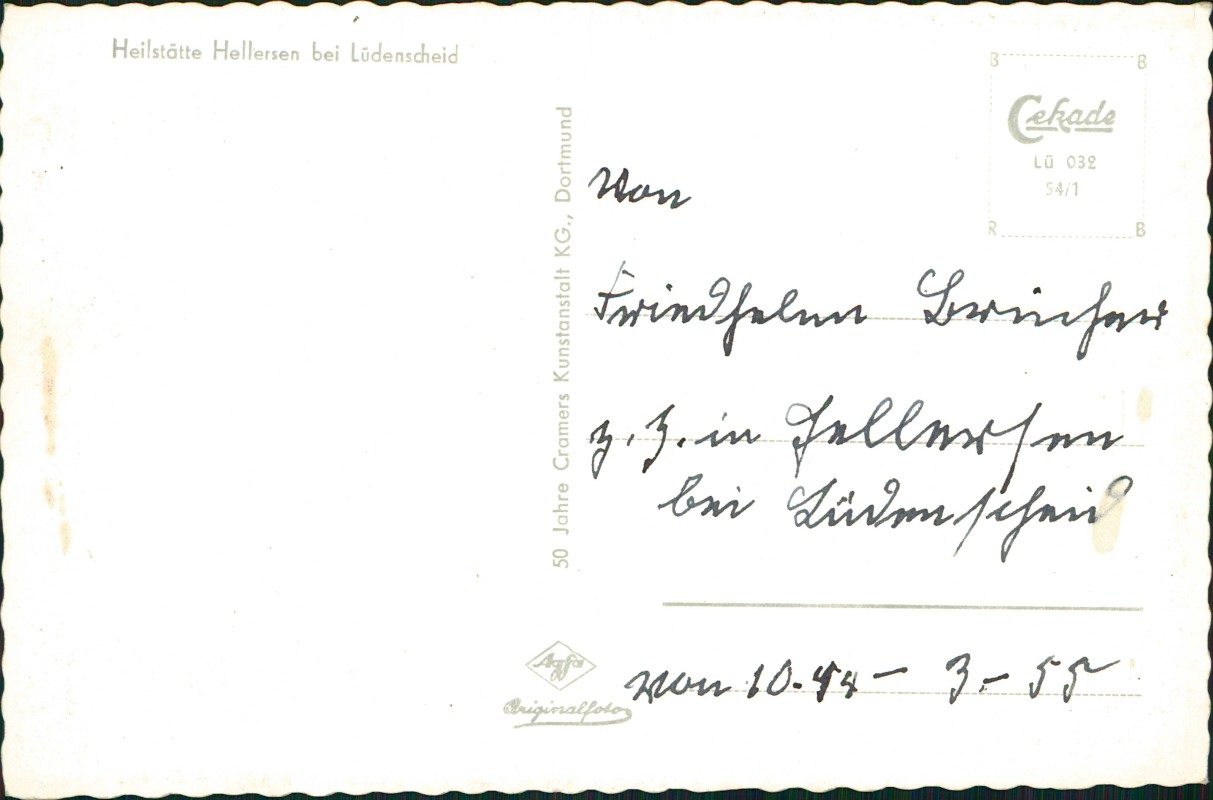 Heilstätte Hellersen bei Lüdenscheid
B B
Cekade
Lü 032
54/1
R B
50 Jahre Cramers Kunstanstalt KG., Dortmund
Von
Friedhelm Brücher
z. Z. in Hellersen
bei Lüdenscheid
Agfa
Originalfoto
von 10.54 – 3.– 55